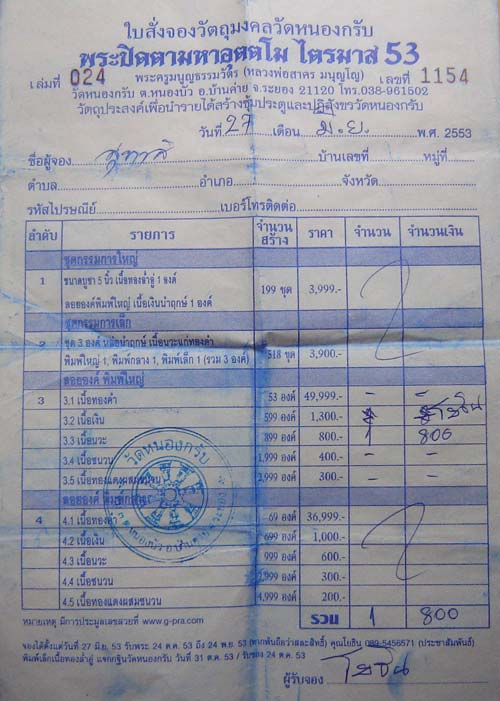 ใบสั่งจองวัตถุมงคลวัดหนองกรับ
พระปิดตามหาอุตตโม ไตรมาส 53
เล่มที่ 024 พระครูมนูญธรรมวัตร (หลวงพ่อสาคร มนุญโญ) เลขที่ 1154
วัดหนองกรับ ต.หนองบัว อ.บ้านค่าย จ.ระยอง 21120 โทร.038-961502
วัตถุประสงค์เพื่อนำรายได้สร้างซุ้มประตูและปฏิสังขรวัดหนองกรับ
วันที่ 27 เดือน มิ.ย. พ.ศ. 2553
ชื่อผู้จอง บ้านเลขที่ หมู่ที่
ตำบล อำเภอ จังหวัด
รหัสไปรษณีย์ เบอร์โทรติดต่อ
ลำดับ รายการ จำนวนสร้าง ราคา จำนวน จำนวนเงิน
ชุดกรรมการใหญ่
1 ขนาดบูชา 5 นิ้ว เนื้อทองลำอู่ 1 องค์
ลอยองค์พิมพ์ใหญ่ เนื้อเงินนำฤกษ์ 1 องค์ 199 ชุด 3,999.-
ชุดกรรมการเล็ก
2 ชุด 3 องค์ หล่อนำฤกษ์ เนื้อนวะแก่ทองคำ
พิมพ์ใหญ่ 1, พิมพ์กลาง 1, พิมพ์เล็ก 1 (รวม 3 องค์) 518 ชุด 3,900.-
ลอยองค์ พิมพ์ใหญ่
3 3.1 เนื้อทองคำ 53 องค์ 49,999.- - -
3.2 เนื้อเงิน 599 องค์ 1,300.-
3.3 เนื้อนวะ 899 องค์ 800.- 1 800
3.4 เนื้อชนวน 1,999 องค์ 400.- - -
3.5 เนื้อทองแดงผสมชนวน 2,999 องค์ 300.-
ลอยองค์ พิมพ์กลาง
4 4.1 เนื้อทองคำ 69 องค์ 36,999.-
4.2 เนื้อเงิน 699 องค์ 1,000.-
4.3 เนื้อนวะ 999 องค์ 600.-
4.4 เนื้อชนวน 2,999 องค์ 300.-
4.5 เนื้อทองแดงผสมชนวน 4,999 องค์ 200.-
หมายเหตุ มีการประมูลเลขสวยที่ www.g-pra.com รวม 1 800
จองได้ตั้งแต่วันที่ 27 มิ.ย. 53 รับพระ 24 ต.ค. 53 ถึง 24 พ.ย. 53 (หากพ้นถือว่าสละสิทธิ์) คุณโยธิน 089-5456571 (ประชาสัมพันธ์)
พิมพ์เล็กเนื้อทองลำอู่ แจกกฐินวัดหนองกรับ วันที่ 31 ต.ค. 53 / รับของ 24 ต.ค. 53
ผู้รับจอง โยธิน
วัดหนองกรับ